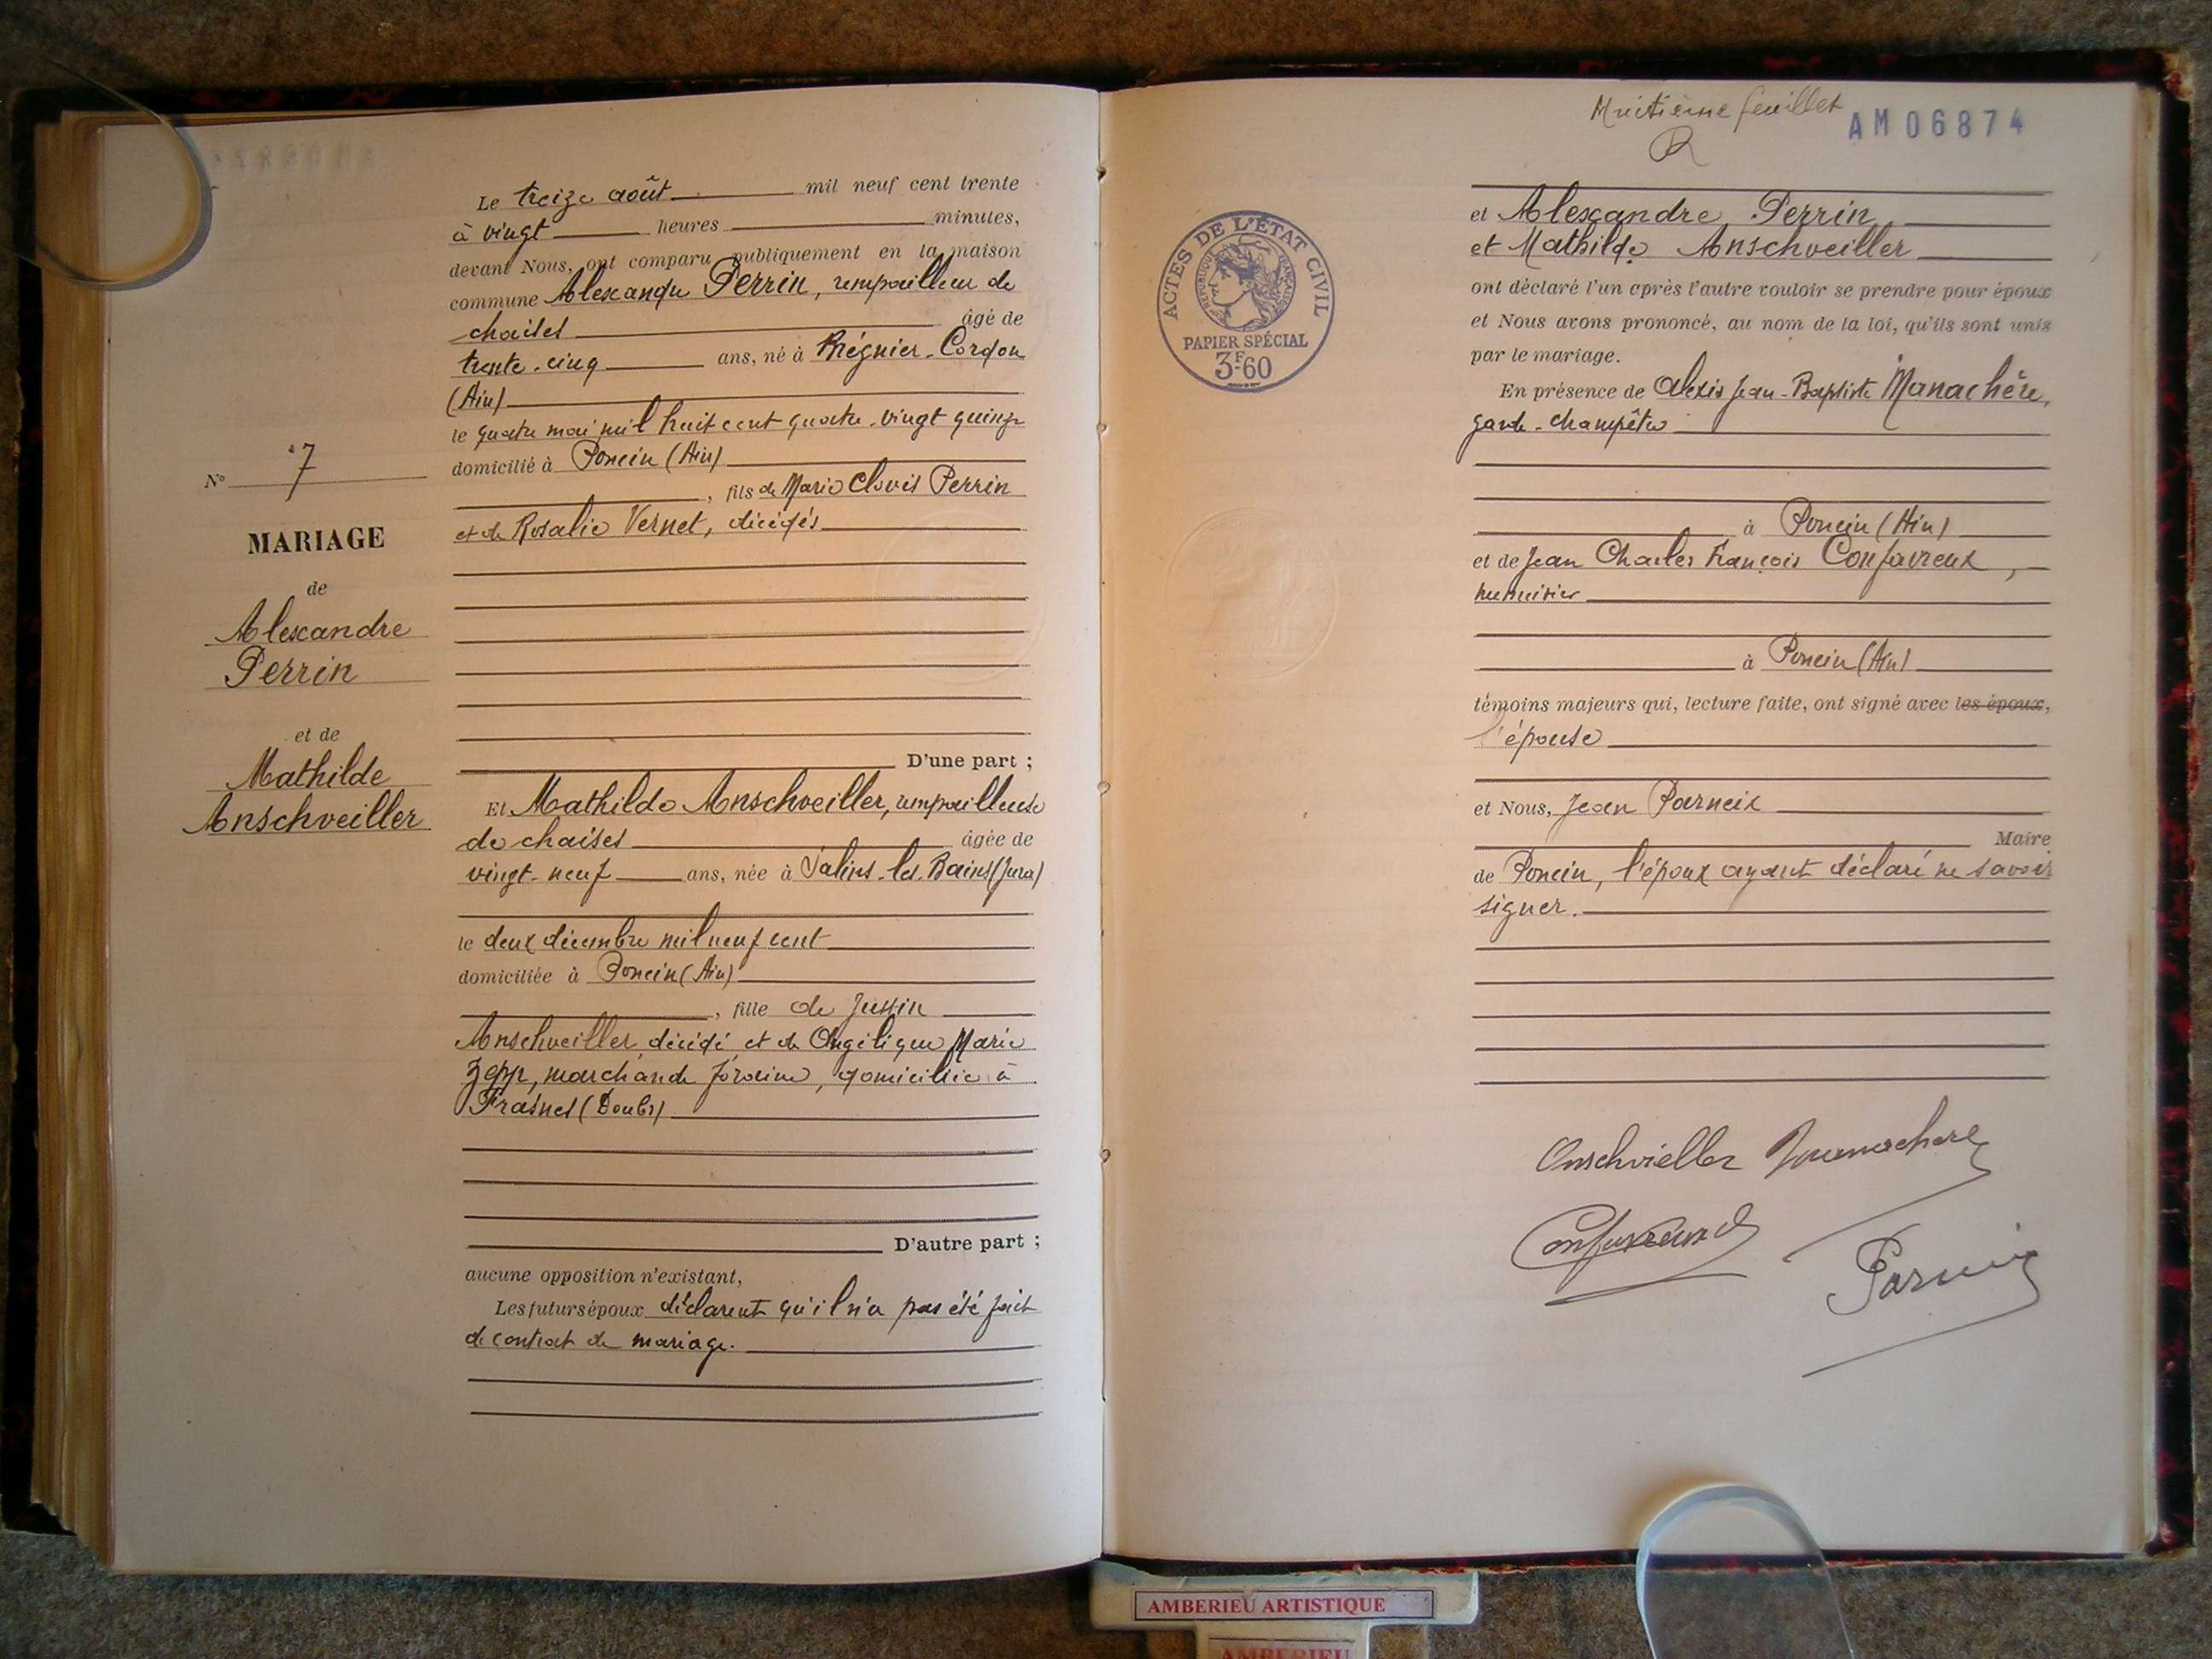 Le treize août mil neuf cent trente
à vingt heures minutes,
devant Nous, ont comparu publiquement en la maison
commune Alexandre Perrin, rempailleur de
chaises âgé de
trente-cinq ans, né à Brégnier-Cordon
(Ain)
le quatre mai mil huit cent quatre-vingt quinze
domicilié à Poncin (Ain)
, fils de Marie Clovis Perrin
et de Rosalie Vernet, décédés
No 7
MARIAGE
de
Alexandre
Perrin
et de
Mathilde
Anschveiller
D'une part ;
Et Mathilde Anschveiller, rempailleuse
de chaises âgée de
vingt-neuf ans, née à Salins-les-Bains (Jura)
le deux décembre mil neuf cent
domiciliée à Poncin (Ain)
, fille de Justin
Anschveiller, décédé et de Angélique Marie
Zepp, marchande foraine, domiciliée à
Frasnes (Doubs)
D'autre part ;
aucune opposition n'existant,
Les futurs époux déclarent qu'il n'a pas été fait
de contrat de mariage.
Huitième feuillet
AM06874
ACTES DE L'ÉTAT CIVIL
RÉPUBLIQUE FRANÇAISE
PAPIER SPÉCIAL
3F60
et Alexandre Perrin
et Mathilde Anschveiller
ont déclaré l'un après l'autre vouloir se prendre pour époux
et Nous avons prononcé, au nom de la loi, qu'ils sont unis
par le mariage.
En présence de Alexis Jean-Baptiste Manachère,
garde-champêtre
à Poncin (Ain)
et de Jean Charles François Confavreux,
menuisier
à Poncin (Ain)
témoins majeurs qui, lecture faite, ont signé avec les époux,
l'épouse
et Nous, Jean Parneix
Maire
de Poncin, l'époux ayant déclaré ne savoir
signer.
Anschvieller Manachère
Confavreux
Parneix
AMBERIEU ARTISTIQUE
AMBERIEU